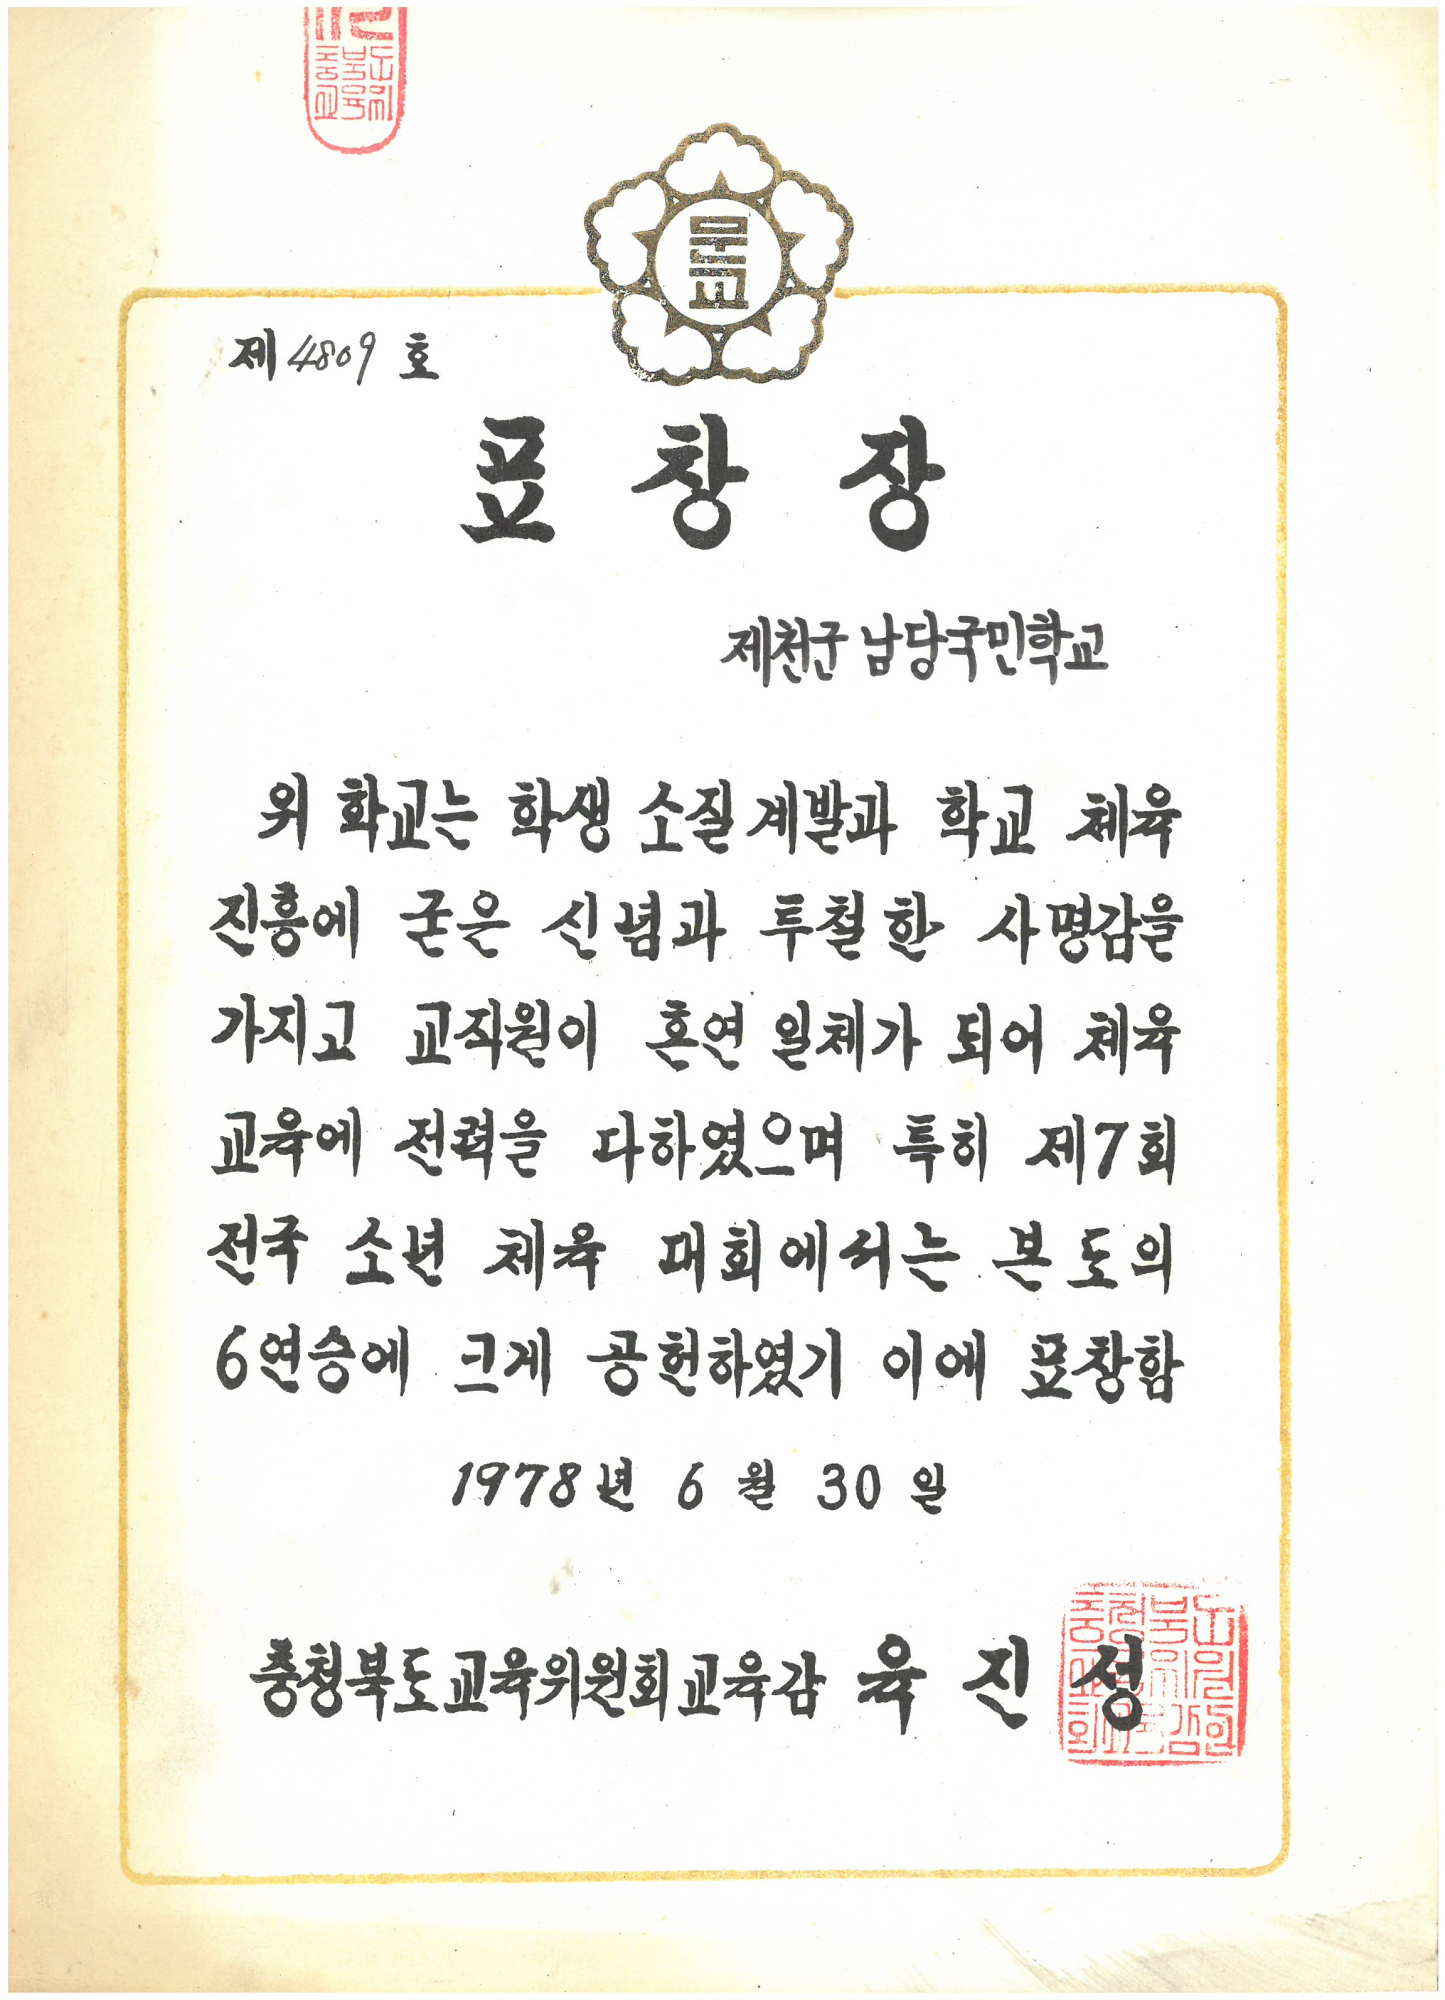 문교
제 4809 호
표 창 장
제천군 남당국민학교
위 학교는 학생 소질 계발과 학교 체육
진흥에 굳은 신념과 투철한 사명감을
가지고 교직원이 혼연 일체가 되어 체육
교육에 전력을 다하였으며 특히 제7회
전국 소년 체육 대회에서는 본도의
6연승에 크게 공헌하였기 이에 표창함
1978년 6 월 30 일
충청북도교육위원회교육감 육 진 성